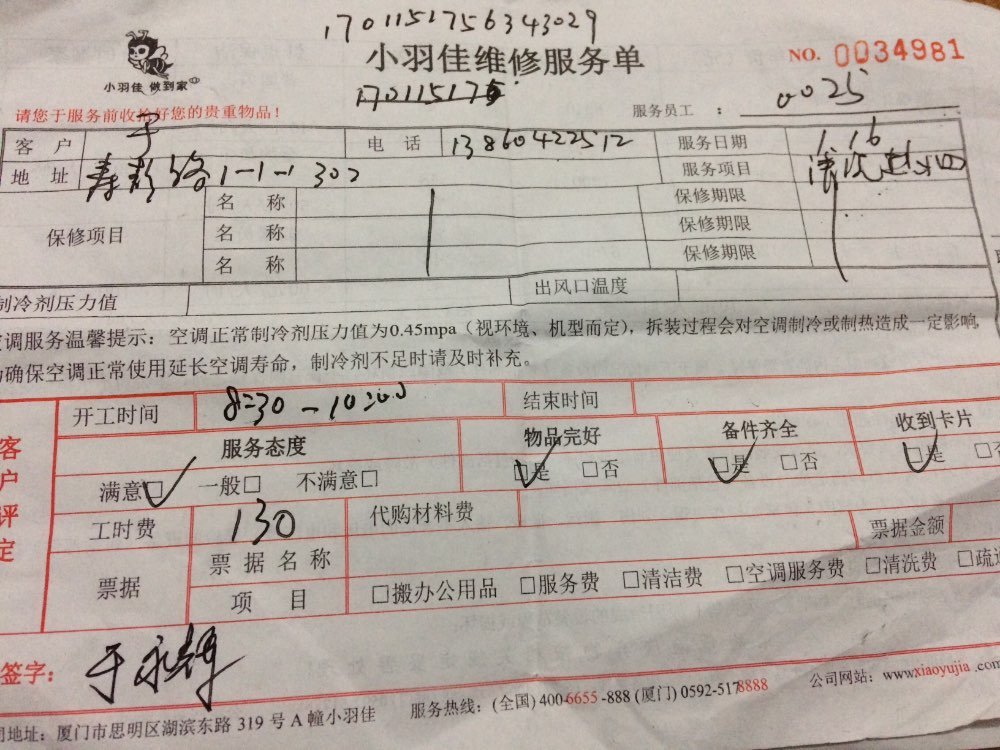 1701151756343029
小羽佳维修服务单
NO. 0034981
小羽佳 做到家
170115175
请您于服务前收拾好您的贵重物品!
服务员工 : 0025
客 户 于 电 话 13860422512 服务日期 1.16
地 址 寿彭路1-1-1 302 服务项目 清洗
保修项目 名 称 保修期限
名 称 保修期限
名 称 保修期限
制冷剂压力值 出风口温度
调服务温馨提示: 空调正常制冷剂压力值为0.45mpa(视环境、机型而定), 拆装过程会对空调制冷或制热造成一定影响
确保空调正常使用延长空调寿命, 制冷剂不足时请及时补充。
客户评定
开工时间 8:30-10:00 结束时间
服务态度 物品完好 备件齐全 收到卡片
满意□ 一般□ 不满意□ □是 □否 □是 □否 □是 □否
工时费 130 代购材料费
票据 票据名称 票据金额
项 目 □搬办公用品 □服务费 □清洁费 □空调服务费 □清洗费 □疏
签字:
地址: 厦门市思明区湖滨东路 319 号 A 幢小羽佳 服务热线: (全国) 400-6655-888 (厦门) 0592-5178888 公司网站: www.xiaoyujia.com